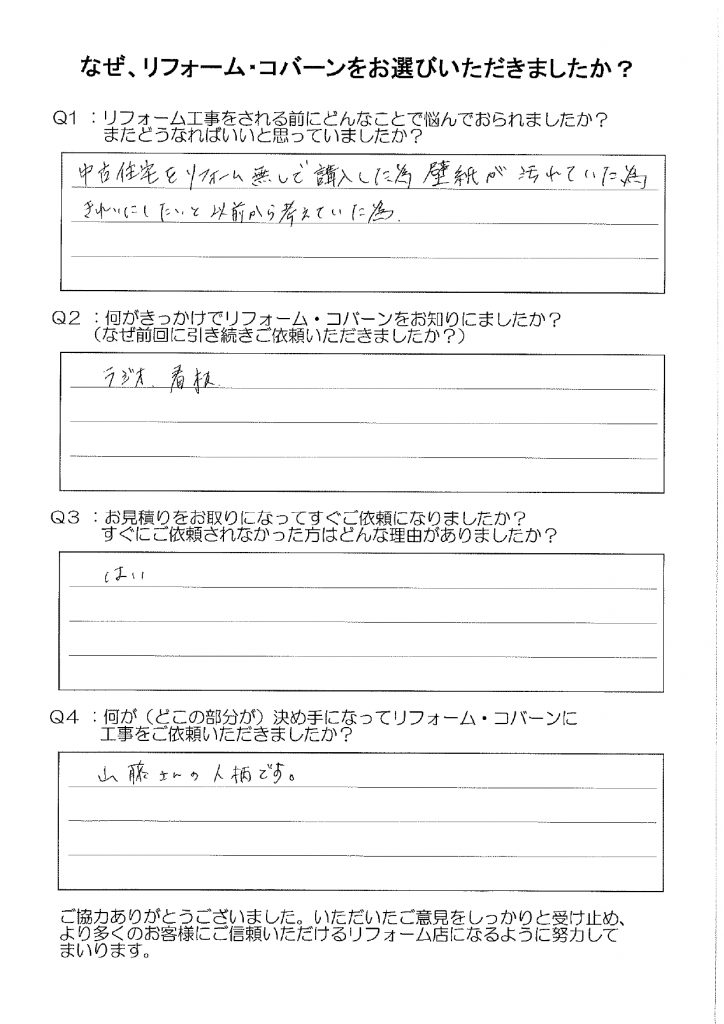 なぜ、リフォーム・コバーンをお選びいただきましたか？
Q1 ：リフォーム工事をされる前にどんなことで悩んでおられましたか？
またどうなればいいと思っていましたか？
中古住宅をリフォーム無しで購入した為 壁紙が 汚れていた為
きれいにしたいと以前から考えていた為.
Q2 ：何がきっかけでリフォーム・コバーンをお知りにましたか？
（なぜ前回に引き続きご依頼いただきましたか？）
ラジオ. 看板.
Q3 ：お見積りをお取りになってすぐご依頼になりましたか？
すぐにご依頼されなかった方はどんな理由がありましたか？
はい
Q4 ：何が（どこの部分が）決め手になってリフォーム・コバーンに
工事をご依頼いただきましたか？
山藤さんの人柄です。
ご協力ありがとうございました。いただいたご意見をしっかりと受け止め、
より多くのお客様にご信頼いただけるリフォーム店になるように努力して
まいります。